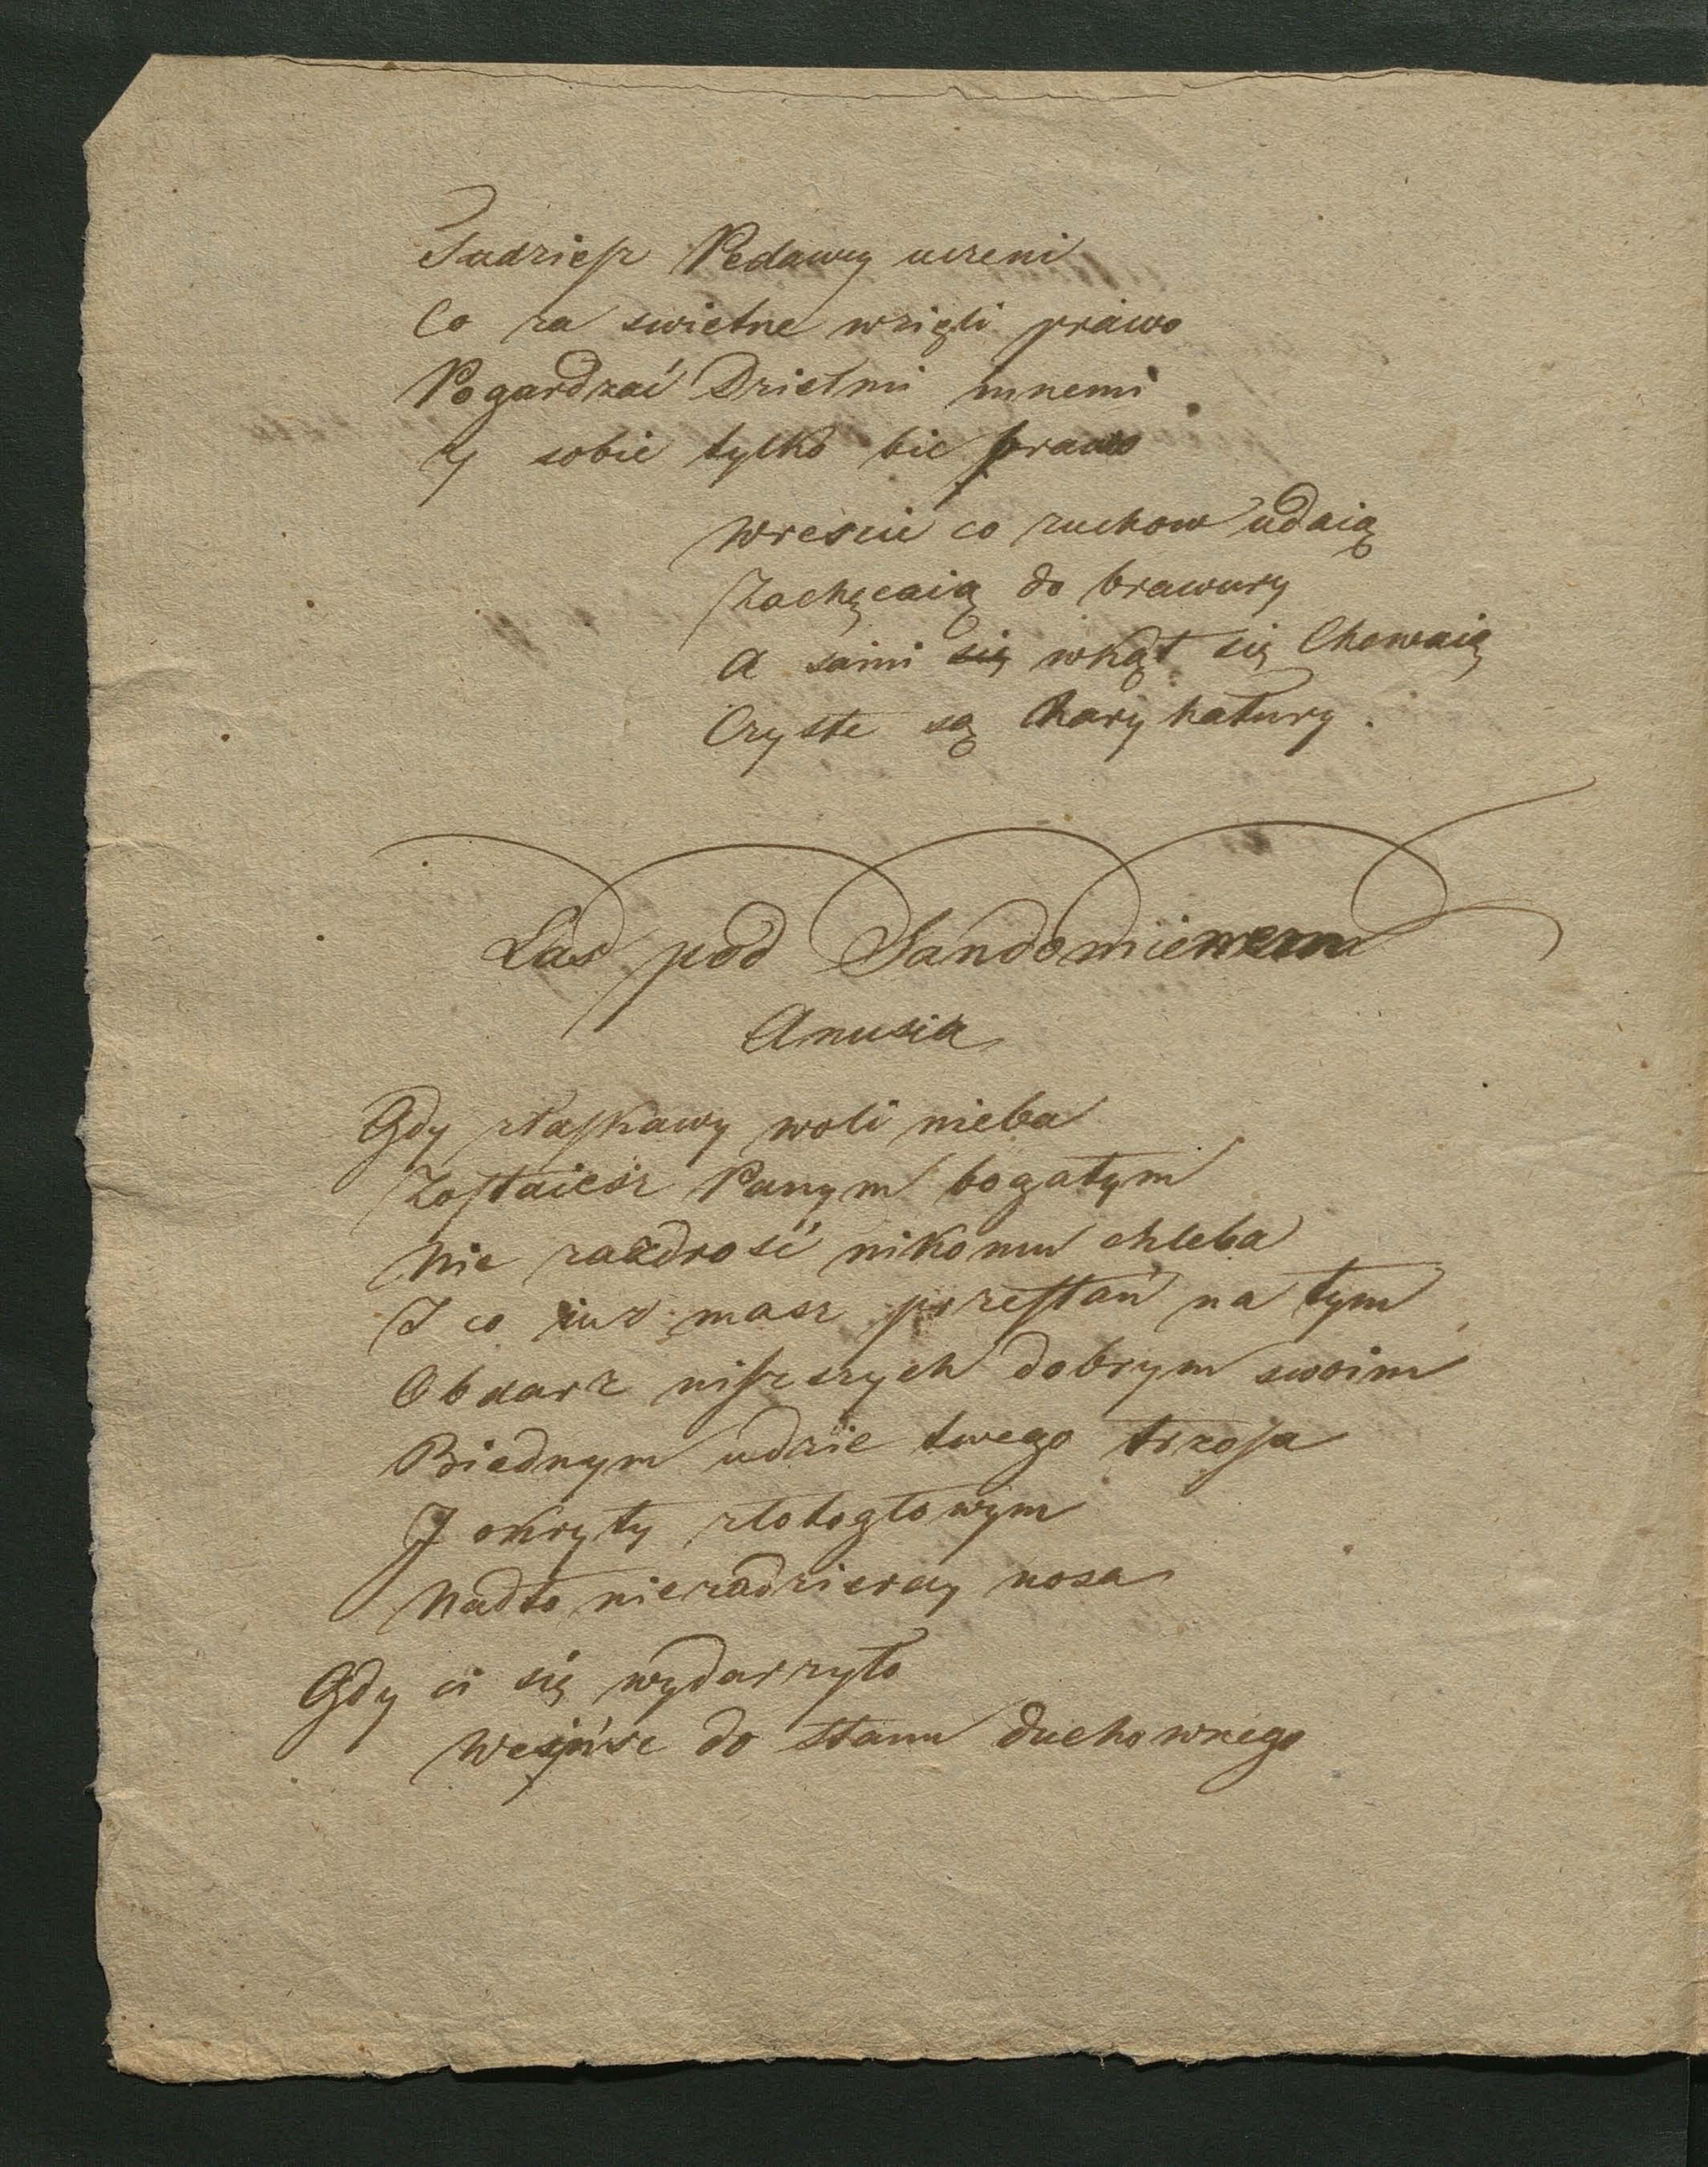 Tudzież Pedancy uczeni
Co za swietne wzięli prawo
Pogardzać Dziełmi innemi
Y sobie tylko bić brawo
Wrescie co zuchow udaią
Zachęcaią do brawury
A sami się wkąt się Chowaią
Czyste są Karykatury.
Las pod Sandomierzem
Anusia
Gdy złaskawy woli nieba
Zostaiesz Panym bogatym
Nie zazdrość nikomu chleba
I co iuż masz przestań na tym
Obdarz niższych dobrym swoim
Biednym udzie twego trzosa
I okryty złotogłowym
Nadto niezadzieray nosa
Gdy ci się wydarzyło
Wejśsc do stanu duchownego